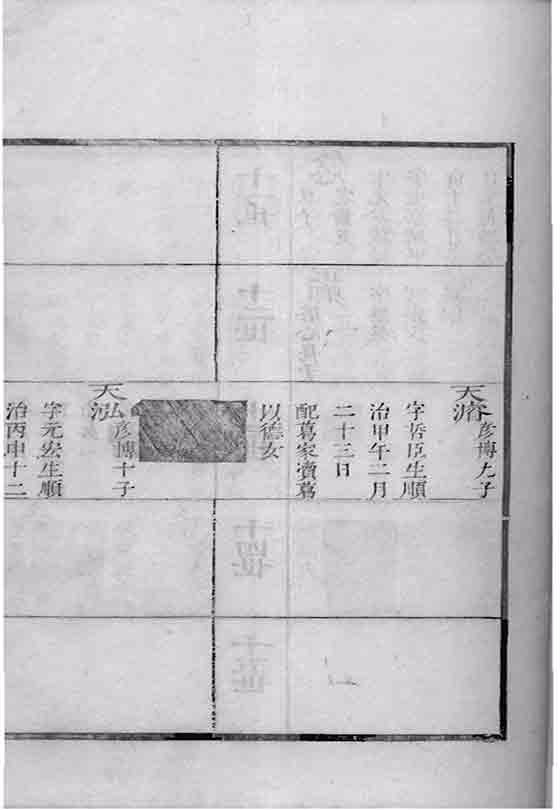 天濬 彥博九子
字哲臣生順
治甲午二月
二十三日
配葛家瀆葛
以德女
天泓 彥博十子
字元宏生順
治丙申十二